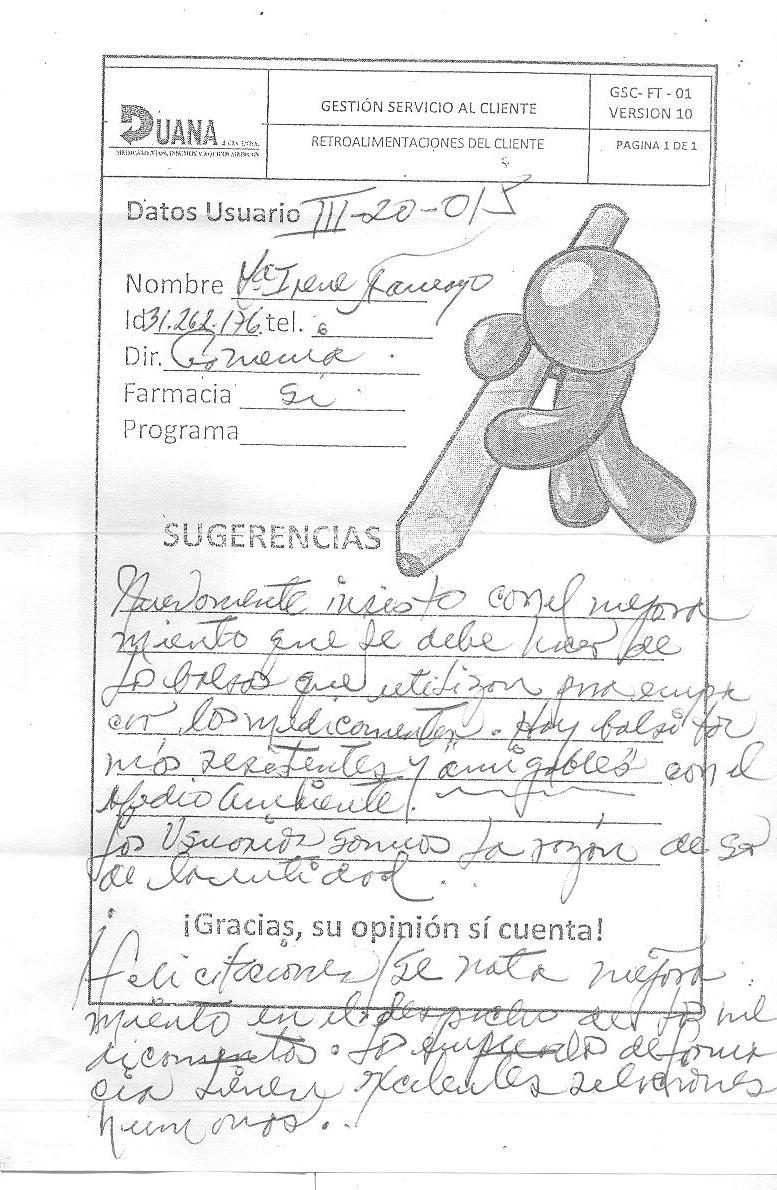 DUANA
& CIA LTDA.
MEDICAMENTOS, INSUMOS Y EQUIPOS MEDICOS
GESTIÓN SERVICIO AL CLIENTE
RETROALIMENTACIONES DEL CLIENTE
GSC- FT - 01
VERSION 10
PAGINA 1 DE 1
Datos Usuario III-20-015
Nombre Ma Irene
Id 31.262.176. tel.
Dir.
Farmacia Si
Programa
SUGERENCIAS
Nuevamente insisto con el mejora
miento que se debe hacer de
las bolsas que utilizan para empa
car los medicamentos. Hay bolsitas
más resistentes y "amigables" con el
Medio Ambiente.
Los Usuarios somos la razón de ser
de la entidad.
¡Gracias, su opinión sí cuenta!
Felicitaciones/se nota mejora
miento en el despacho de los me
dicamentos. Los empleados de farma
cia tienen excelentes relaciones
humanas.